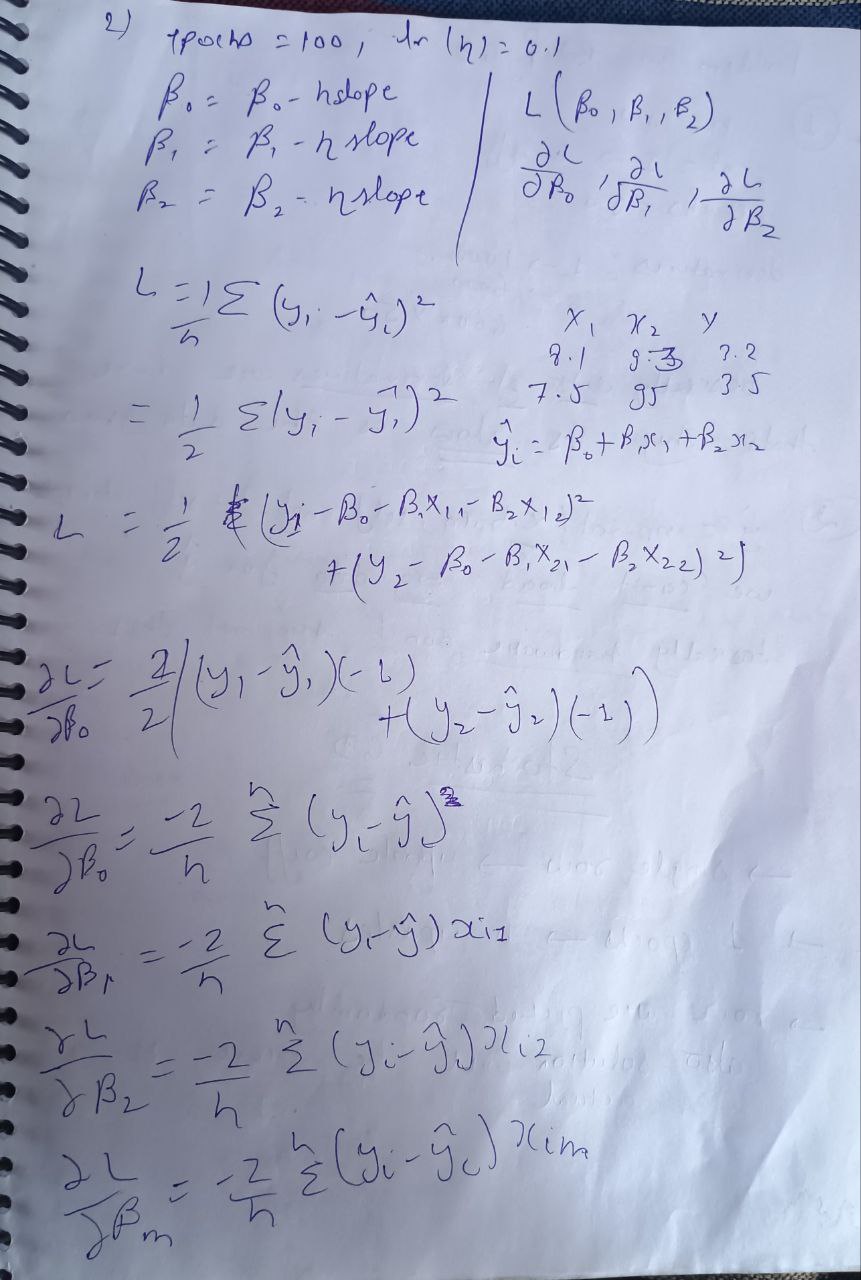 2) epochs = 100, lr (η) = 0.1
β₀ = β₀ - η slope
β₁ = β₁ - η slope
β₂ = β₂ - η slope
L (β₀, β₁, β₂)
∂L/∂β₀, ∂L/∂β₁, ∂L/∂β₂
L = 1/n Σ (yᵢ - ŷᵢ)²
= 1/2 Σ(yᵢ - ŷᵢ)²
x₁ x₂ y
8.1 93
7.5 95 3.5
ŷᵢ = β₀ + β₁x₁ + β₂x₂
L = 1/2 ((y₁ - β₀ - β₁x₁₁ - β₂x₁₂)²
+ (y₂ - β₀ - β₁x₂₁ - β₂x₂₂)²)
∂L/∂β₀ = 2/2 ((y₁ - ŷ₁)(-1)
+ (y₂ - ŷ₂)(-1))
∂L/∂β₀ = -2/n Σⁿ (yᵢ - ŷ)
∂L/∂β₁ = -2/n Σⁿ (yᵢ - ŷ) xᵢ₁
∂L/∂β₂ = -2/n Σⁿ (yᵢ - ŷ) xᵢ₂
∂L/∂βₘ = -2/n Σⁿ (yᵢ - ŷᵢ) xᵢₘ